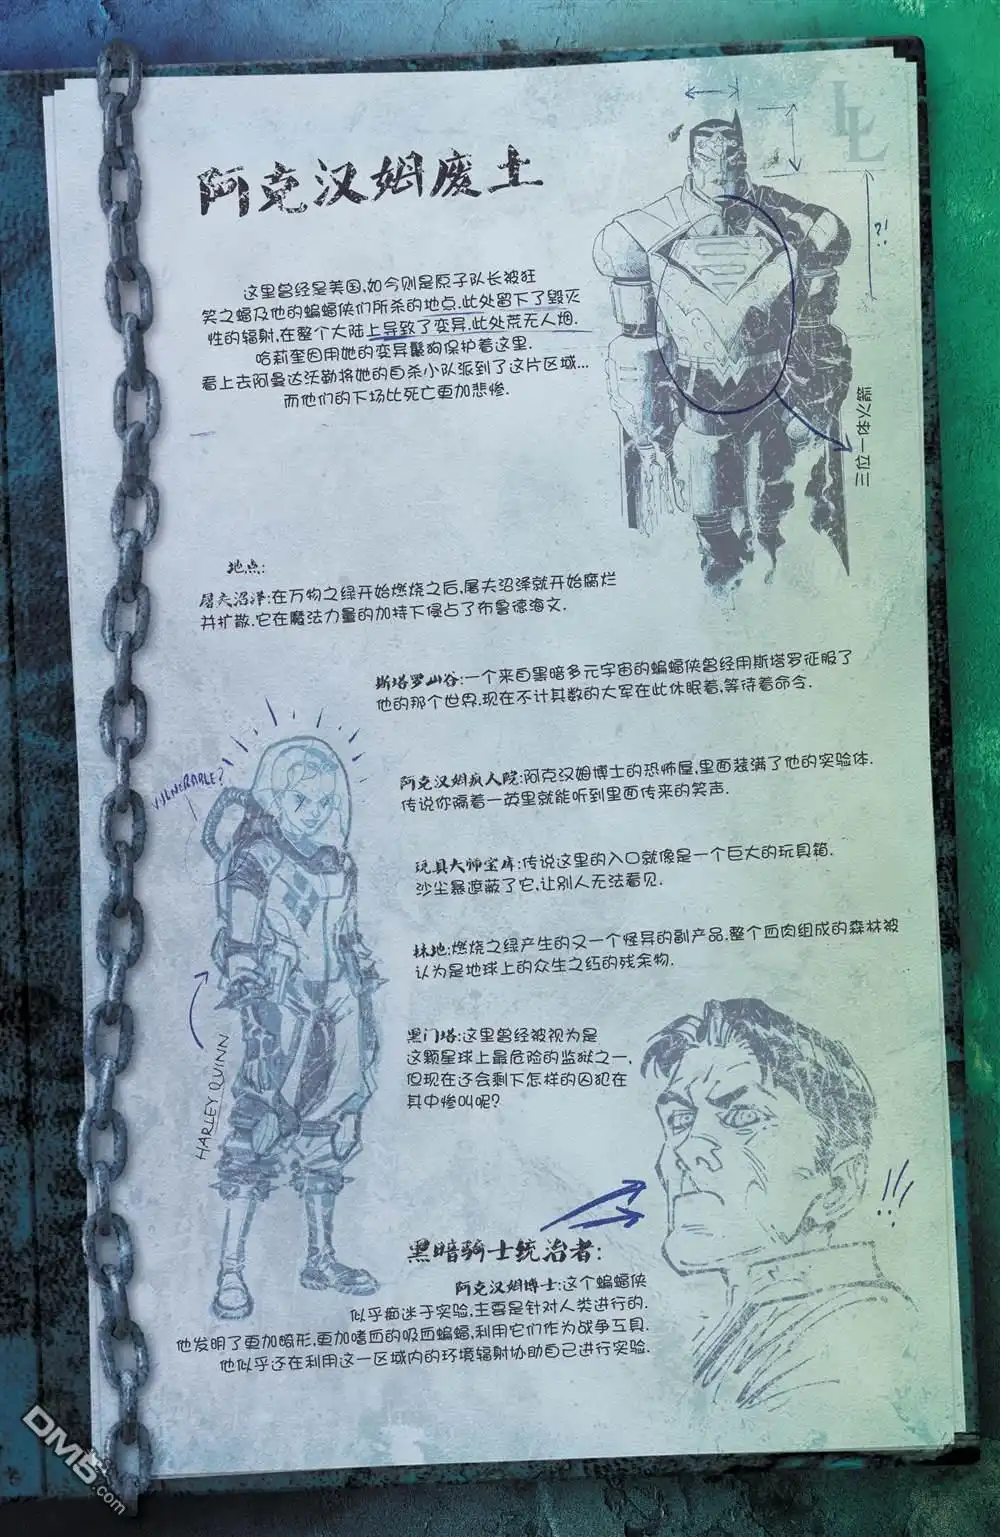 LL
阿克汉姆废土
?!
这里曾经是美国,如今则是原子队长被狂
笑之蝠及他的蝙蝠侠们所杀的地点.此处留下了毁灭
性的辐射,在整个大陆上导致了变异.此处荒无人烟.
哈莉奎因用她的变异鬣狗保护着这里.
看上去阿曼达沃勒将她的自杀小队派到了这片区域...
而他们的下场比死亡更加悲惨.
三位一体火箭
地点:
屠夫沼泽:在万物之绿开始燃烧之后,屠夫沼泽就开始腐烂
并扩散.它在魔法力量的加持下侵占了布鲁德海文.
斯塔罗山谷:一个来自黑暗多元宇宙的蝙蝠侠曾经用斯塔罗征服了
他的那个世界.现在不计其数的大军在此休眠着,等待着命令.
VULNERABLE?
阿克汉姆疯人院:阿克汉姆博士的恐怖屋,里面装满了他的实验体.
传说你隔着一英里就能听到里面传来的笑声.
玩具大师宝库:传说这里的入口就像是一个巨大的玩具箱.
沙尘暴遮蔽了它,让别人无法看见.
林地:燃烧之绿产生的又一个怪异的副产品.整个血肉组成的森林被
认为是地球上的众生之红的残余物.
黑门塔:这里曾经被视为是
这颗星球上最危险的监狱之一,
但现在还会剩下怎样的囚犯在
其中惨叫呢?
HARLEY QUINN
!!!
黑暗骑士统治者:
阿克汉姆博士:这个蝙蝠侠
似乎痴迷于实验,主要是针对人类进行的.
他发明了更加畸形,更加嗜血的吸血蝙蝠,利用它们作为战争工具.
他似乎还在利用这一区域内的环境辐射协助自己进行实验.
DM5.com